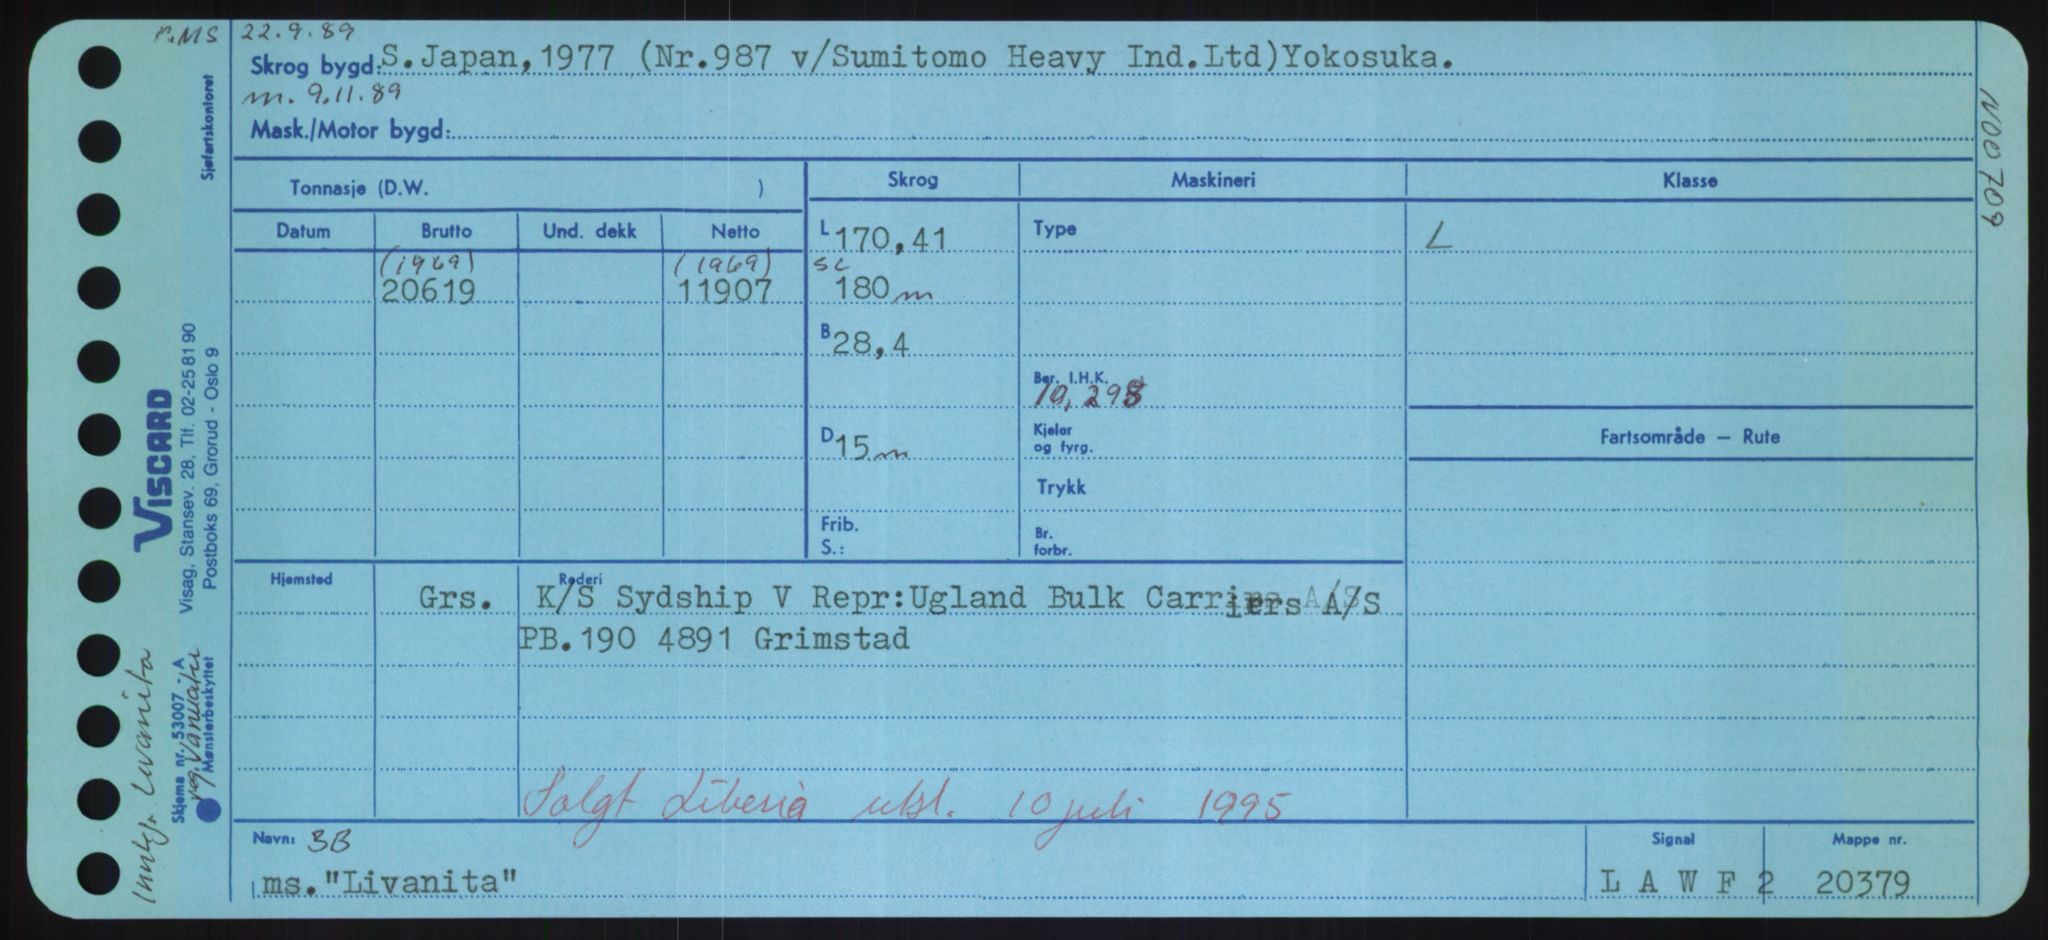 r.MS 22.9.89
Skrog bygd: S.Japan,1977 (Nr.987 v/Sumitomo Heavy Ind.Ltd)Yokosuka.
m. 9.11.89
Mask./Motor bygd:
Tonnasje (D.W. ) Skrog Maskineri Klasse
Datum Brutto Und. dekk Netto L 170,41 Type L
(1969) (1969) SL
20619 11907 180 m
B 28,4
Ber. I.H.K.
10,298
D 15 m Kjeler og fyrg. Fartsområde — Rute
Trykk
Frib. Br.
S.: forbr.
Hjemsted Rederi
Grs. K/S Sydship V Repr:Ugland Bulk Carriers A/S
PB.190 4891 Grimstad
Solgt Liberia utsl. 10 juli 1995
Navn: BB Signal Mappe nr.
ms."Livanita" L A W F 2 20379
Sjøfartskontoret
VISCARD
Visag, Stansev. 28, Tlf. 02-25 81 90
Postboks 69, Grorud - Oslo 9
Skjema nr. 53007 - A
Mønsterbeskyttet
Livanita
N00709